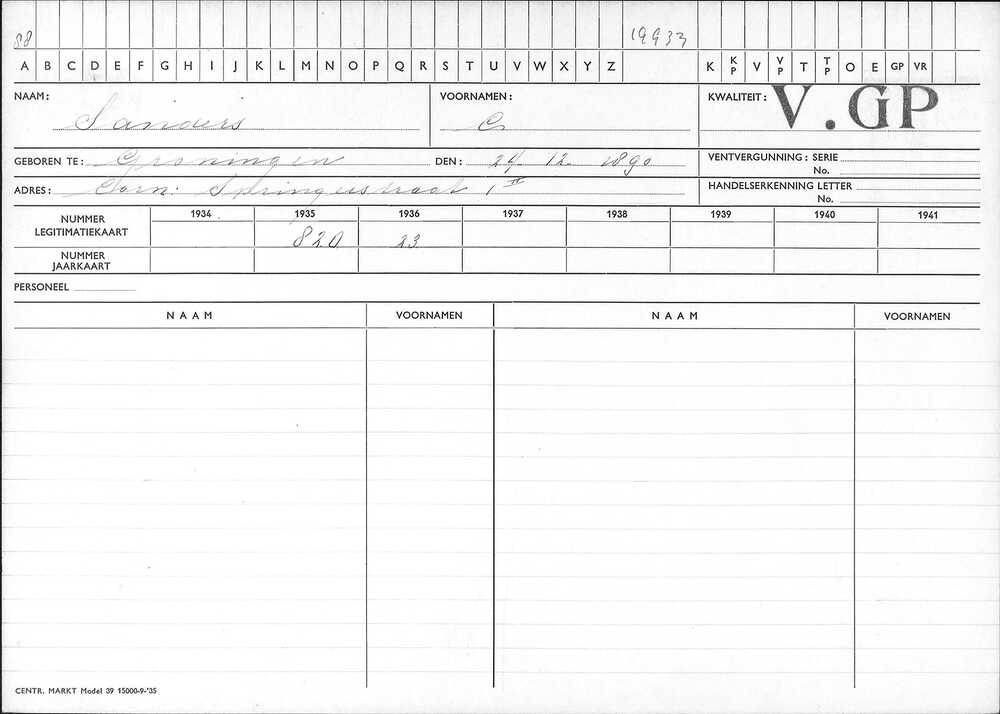 88 19933
A B C D E F G H I J K L M N O P Q R S T U V W X Y Z K KP V VP T TP O E GP VR
NAAM: Sanders VOORNAMEN: C. KWALITEIT: V.GP
GEBOREN TE: Groningen DEN: 24 12 1890 VENTVERGUNNING: SERIE
No.
ADRES: Corn: Springerstraat 1 II HANDELSERKENNING LETTER
No.
1934 1935 1936 1937 1938 1939 1940 1941
NUMMER LEGITIMATIEKAART 820 23
NUMMER JAARKAART
PERSONEEL
NAAM VOORNAMEN NAAM VOORNAMEN
CENTR. MARKT Model 39 15000-9-'35